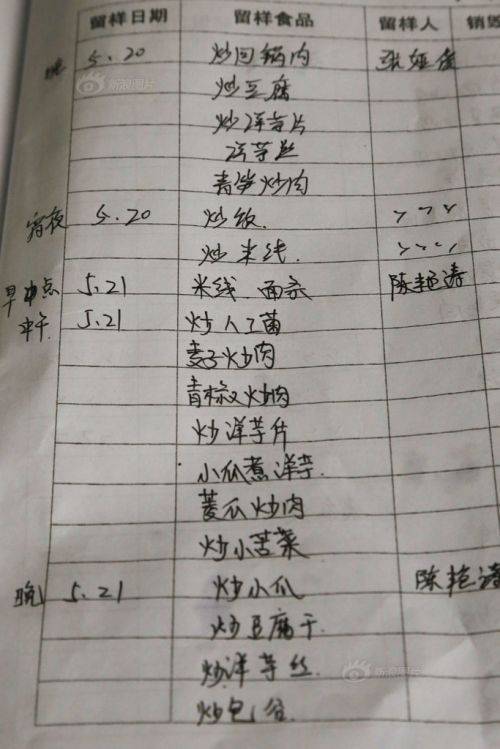 留样日期 留样食品 留样人 销毁
晚 5.20 炒回锅肉
炒豆腐
炒洋芋片
洋芋丝
青笋炒肉
宵夜 5.20 炒饭
炒米线
早点 5.21 米线 面条 陈艳涛
中午 5.21 炒人工菌
麦子炒肉
青椒炒肉
炒洋芋片
小瓜煮洋芋
茭瓜炒肉
炒小苦菜
晚 5.21 炒小瓜 陈艳涛
炒豆腐干
炒洋芋丝
炒包谷
新浪图片
新浪图片